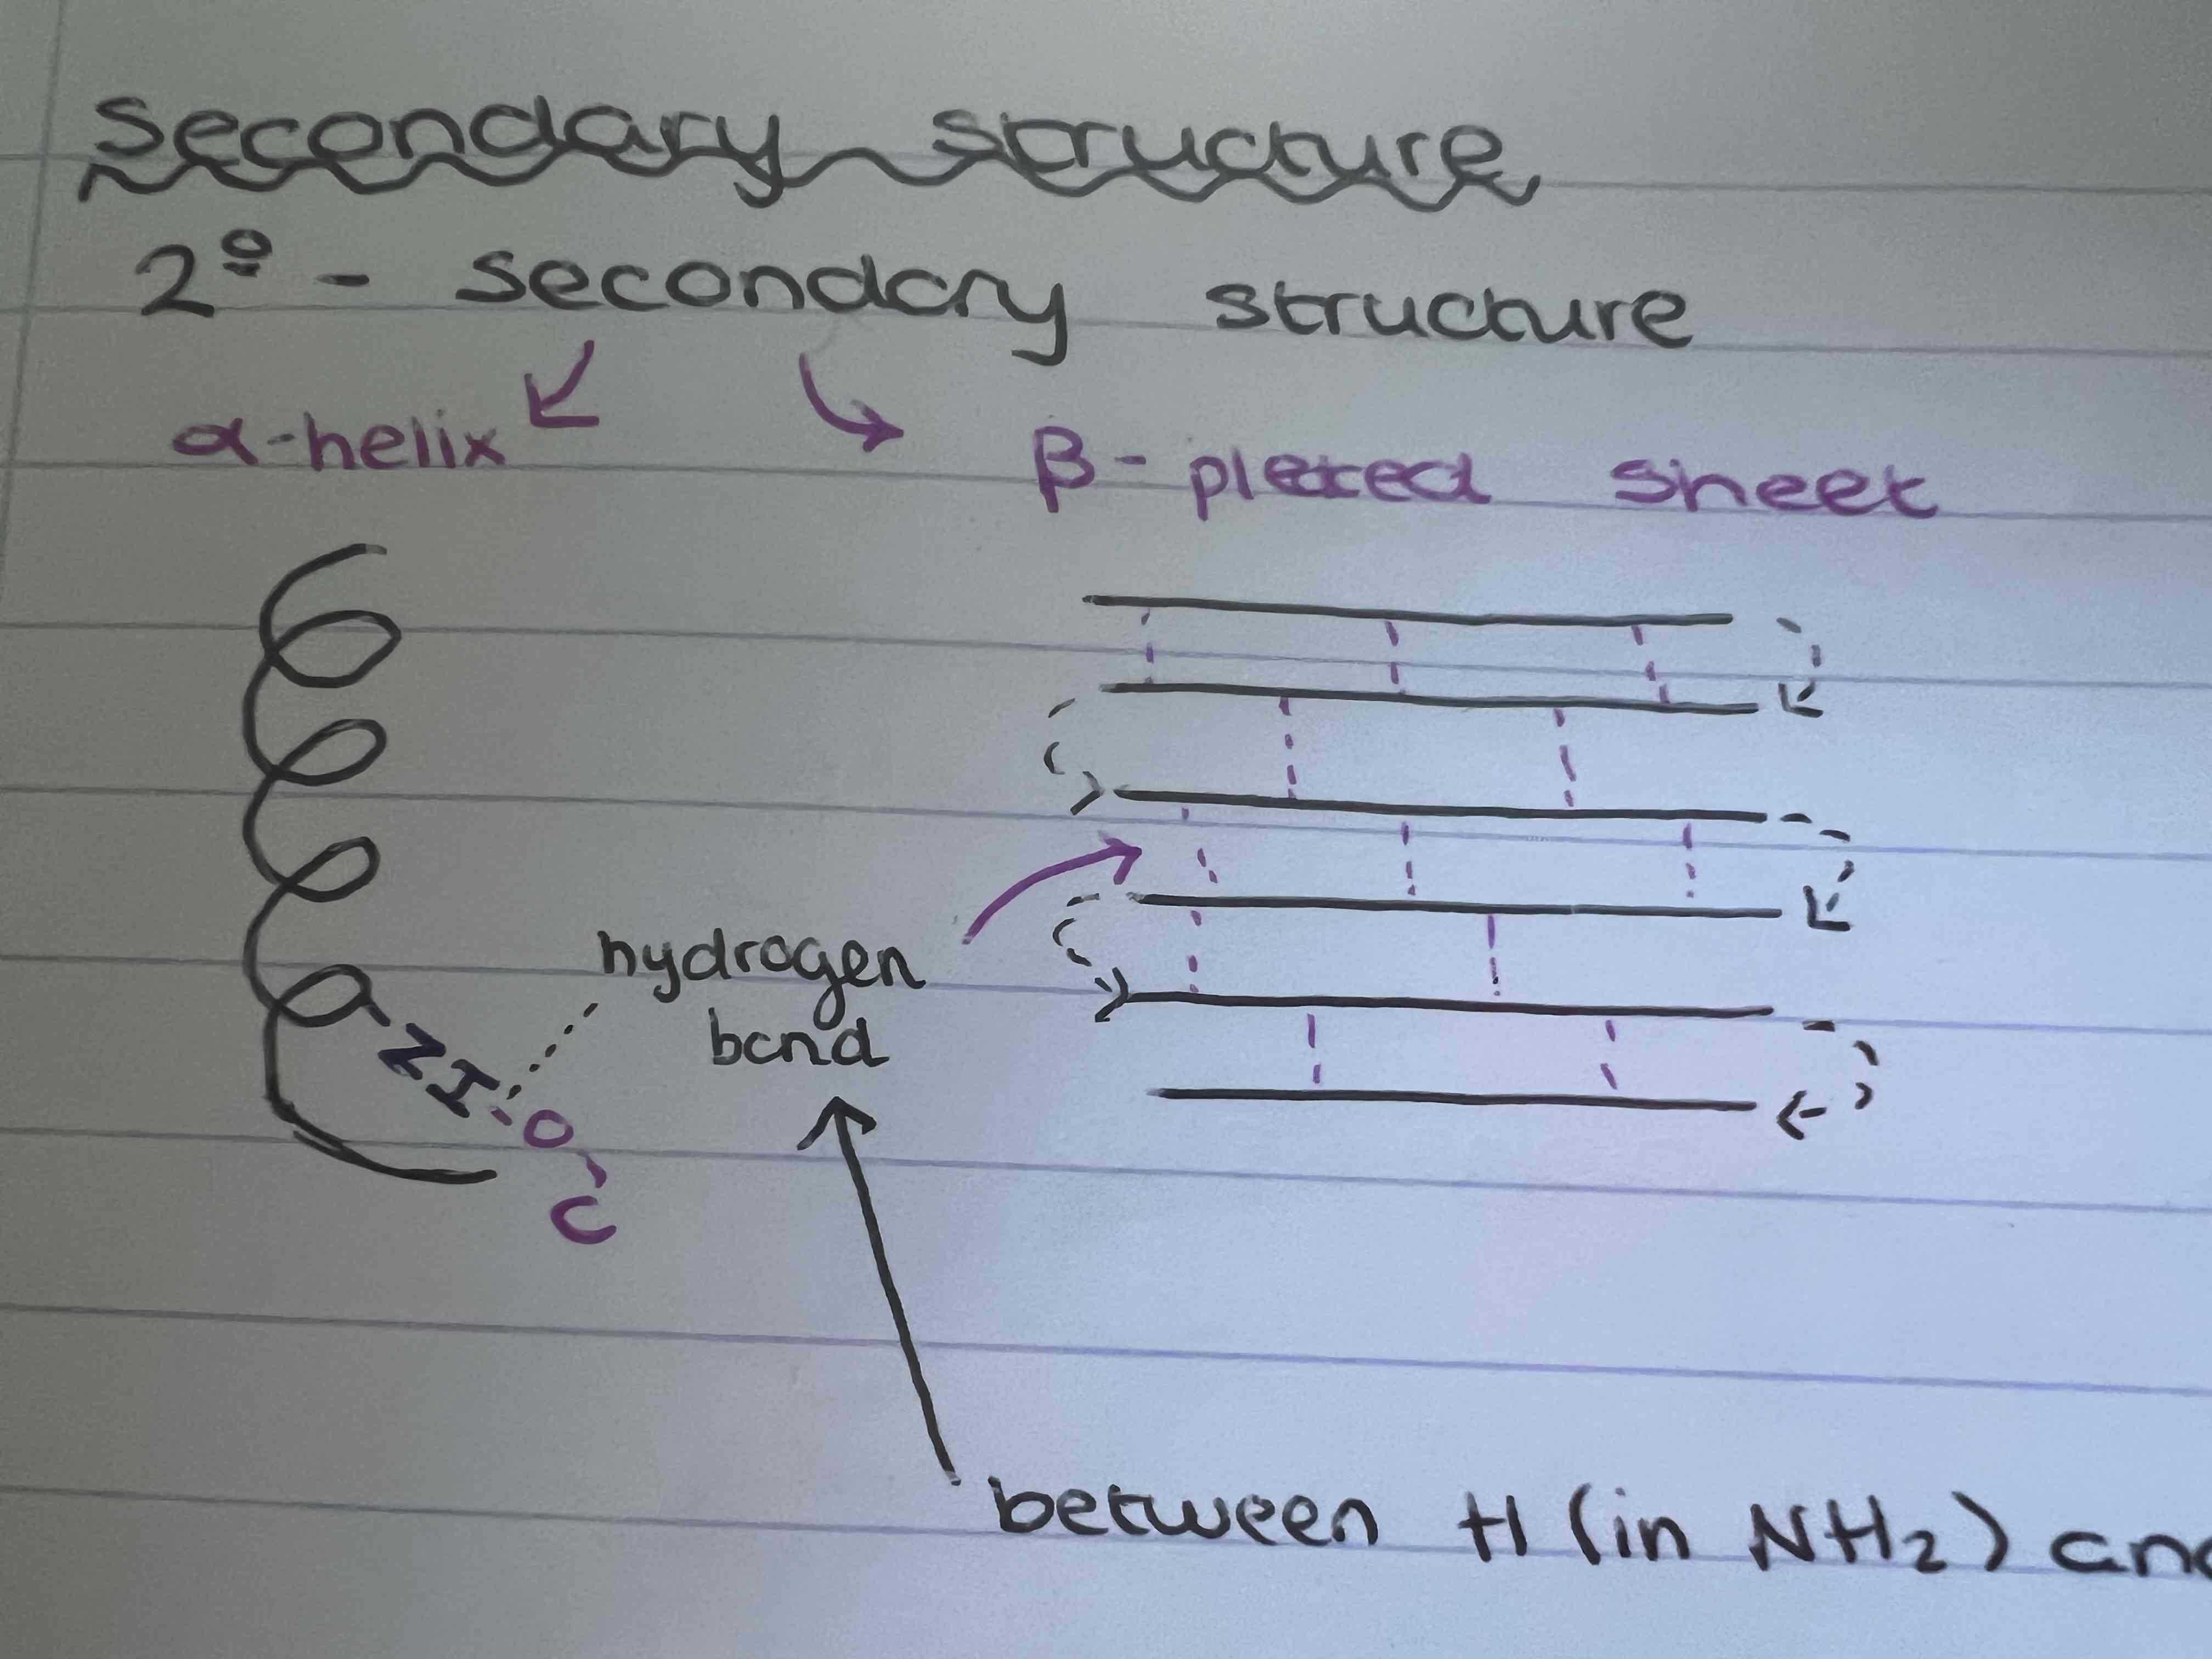 secondary structure
2º - secondary structure
α-helix
β-pleated sheet
hydrogen
bond
N
H
O
C
between H (in NH₂) and